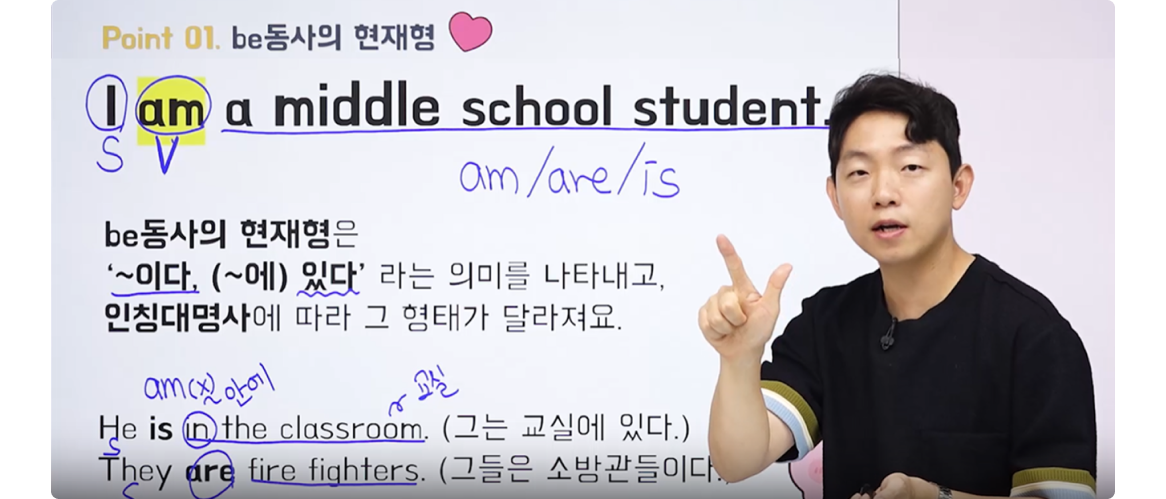 Point 01. be동사의 현재형
I am a middle school student.
S V
am/are/is
be동사의 현재형은
'~이다, (~에) 있다' 라는 의미를 나타내고,
인칭대명사에 따라 그 형태가 달라져요.
안에 교실
He is in the classroom. (그는 교실에 있다.)
S
They are fire fighters. (그들은 소방관들이다.
S